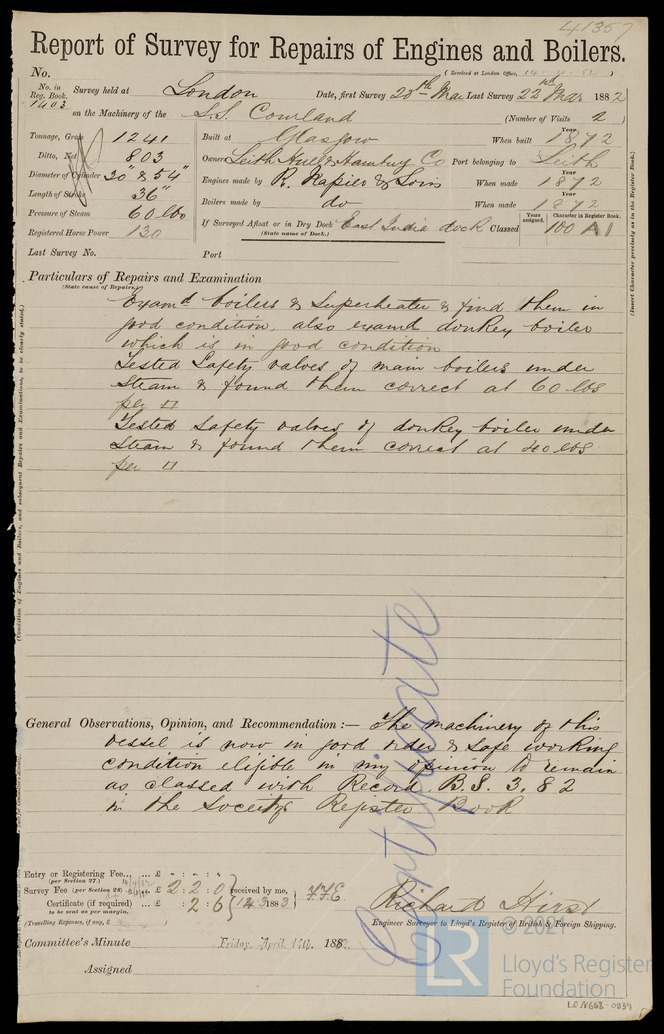 41357
Report of Survey for Repairs of Engines and Boilers.
(Received at London Office, 14 82)
No.
No. in Reg. Book. 1403
Survey held at London Date, first Survey 20th Mar Last Survey 22nd Mar 1882
on the Machinery of the S.S. Courland (Number of Visits 2)
Tonnage, Gross 1241
Ditto, Net 803
Diameter of Cylinder 30" & 54"
Length of Stroke 36"
Pressure of Steam 60 lbs
Registered Horse Power 130
Built at Glasgow When built Year 1872
Owner Leith Hull & Hamburg Co Port belonging to Leith
Engines made by R. Napier & Sons When made Year 1872
Boilers made by do When made Year 1872
If Surveyed Afloat or in Dry Dock East India dock Classed Years assigned. 100 Character in Register Book. A1
(State name of Dock.)
Last Survey No. Port
(Insert Character precisely as in the Register Book.)
Particulars of Repairs and Examination
(State cause of Repairs.)
Examd boilers & Superheater & find them in
good condition, also examd donkey boiler
which is in good condition
Tested Safety valves of main boilers under
Steam & found them correct at 60 lbs
per □
Tested Safety valves of donkey boiler under
Steam & found them correct at 40 lbs
per □
(Condition of Engines and Boilers, and subsequent Repairs and Examinations, to be clearly stated.)
General Observations, Opinion, and Recommendation :— The machinery of this
vessel is now in good order & safe working
condition eligible in my opinion to remain
as classed with Record. B.S. 3, 82
in the Society's Register Book
Certificate
Entry or Registering Fee... ... £ " : " : "
(per Section 27.)
Survey Fee (per Section 28) £ 2 : 2 : 0
Certificate (if required) ... £ : 2 : 6
to be sent as per margin.
(Travelling Expenses, if any, £ )
received by me,
14 3 1883
Richard Hirst
Engineer Surveyor to Lloyd's Register of British & Foreign Shipping.
Committee's Minute Friday, April 14th. 1882
Assigned
© 2021
LR Lloyd's Register
Foundation
LON668-0839